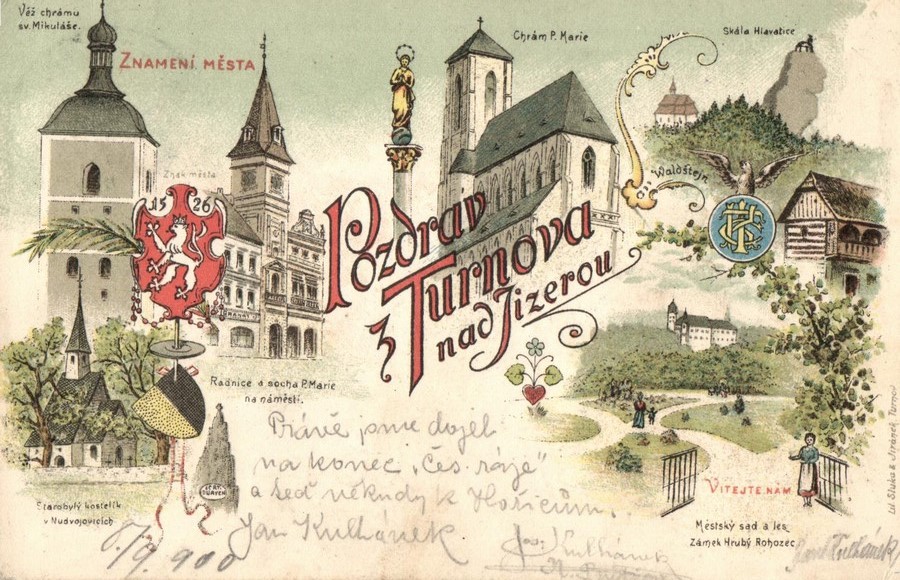 Věž chrámu
sv. Mikuláše.
ZNAMENÍ MĚSTA
Chrám P. Marie
Skála Hlavatice
Znak města
1526
Waldštejn.
Pozdrav
z Turnova
nad Jizerou
Radnice a socha P. Marie
na náměstí.
Starobylý kostelík
v Nudvojovicích
VÍTEJTE NÁM
Městský sad a les
Zámek Hrubý Rohozec
Lit. Sluka & Jiránek, Turnov
Právě jsme dojeli
na konec „Čes. ráje"
a teď někudy k Hořicům.
Jan Kulhánek
Jos. Kulhánek
9. 900
Kulhánek